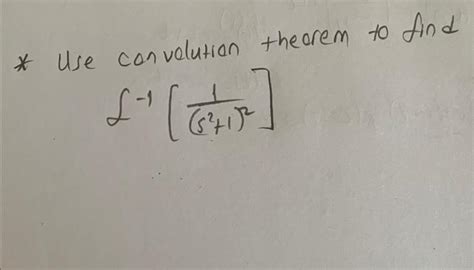 * Use convolution theorem to find
ℒ⁻¹ [ 1/(s²+1)² ]